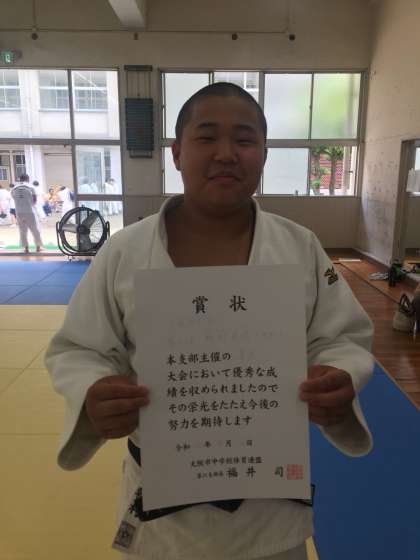 賞状
本支部主催の
大会において優秀な成
績を収められましたので
その栄光をたたえ今後の
努力を期待します
令和 年 月 日
大阪市中学校体育連盟
福井 司